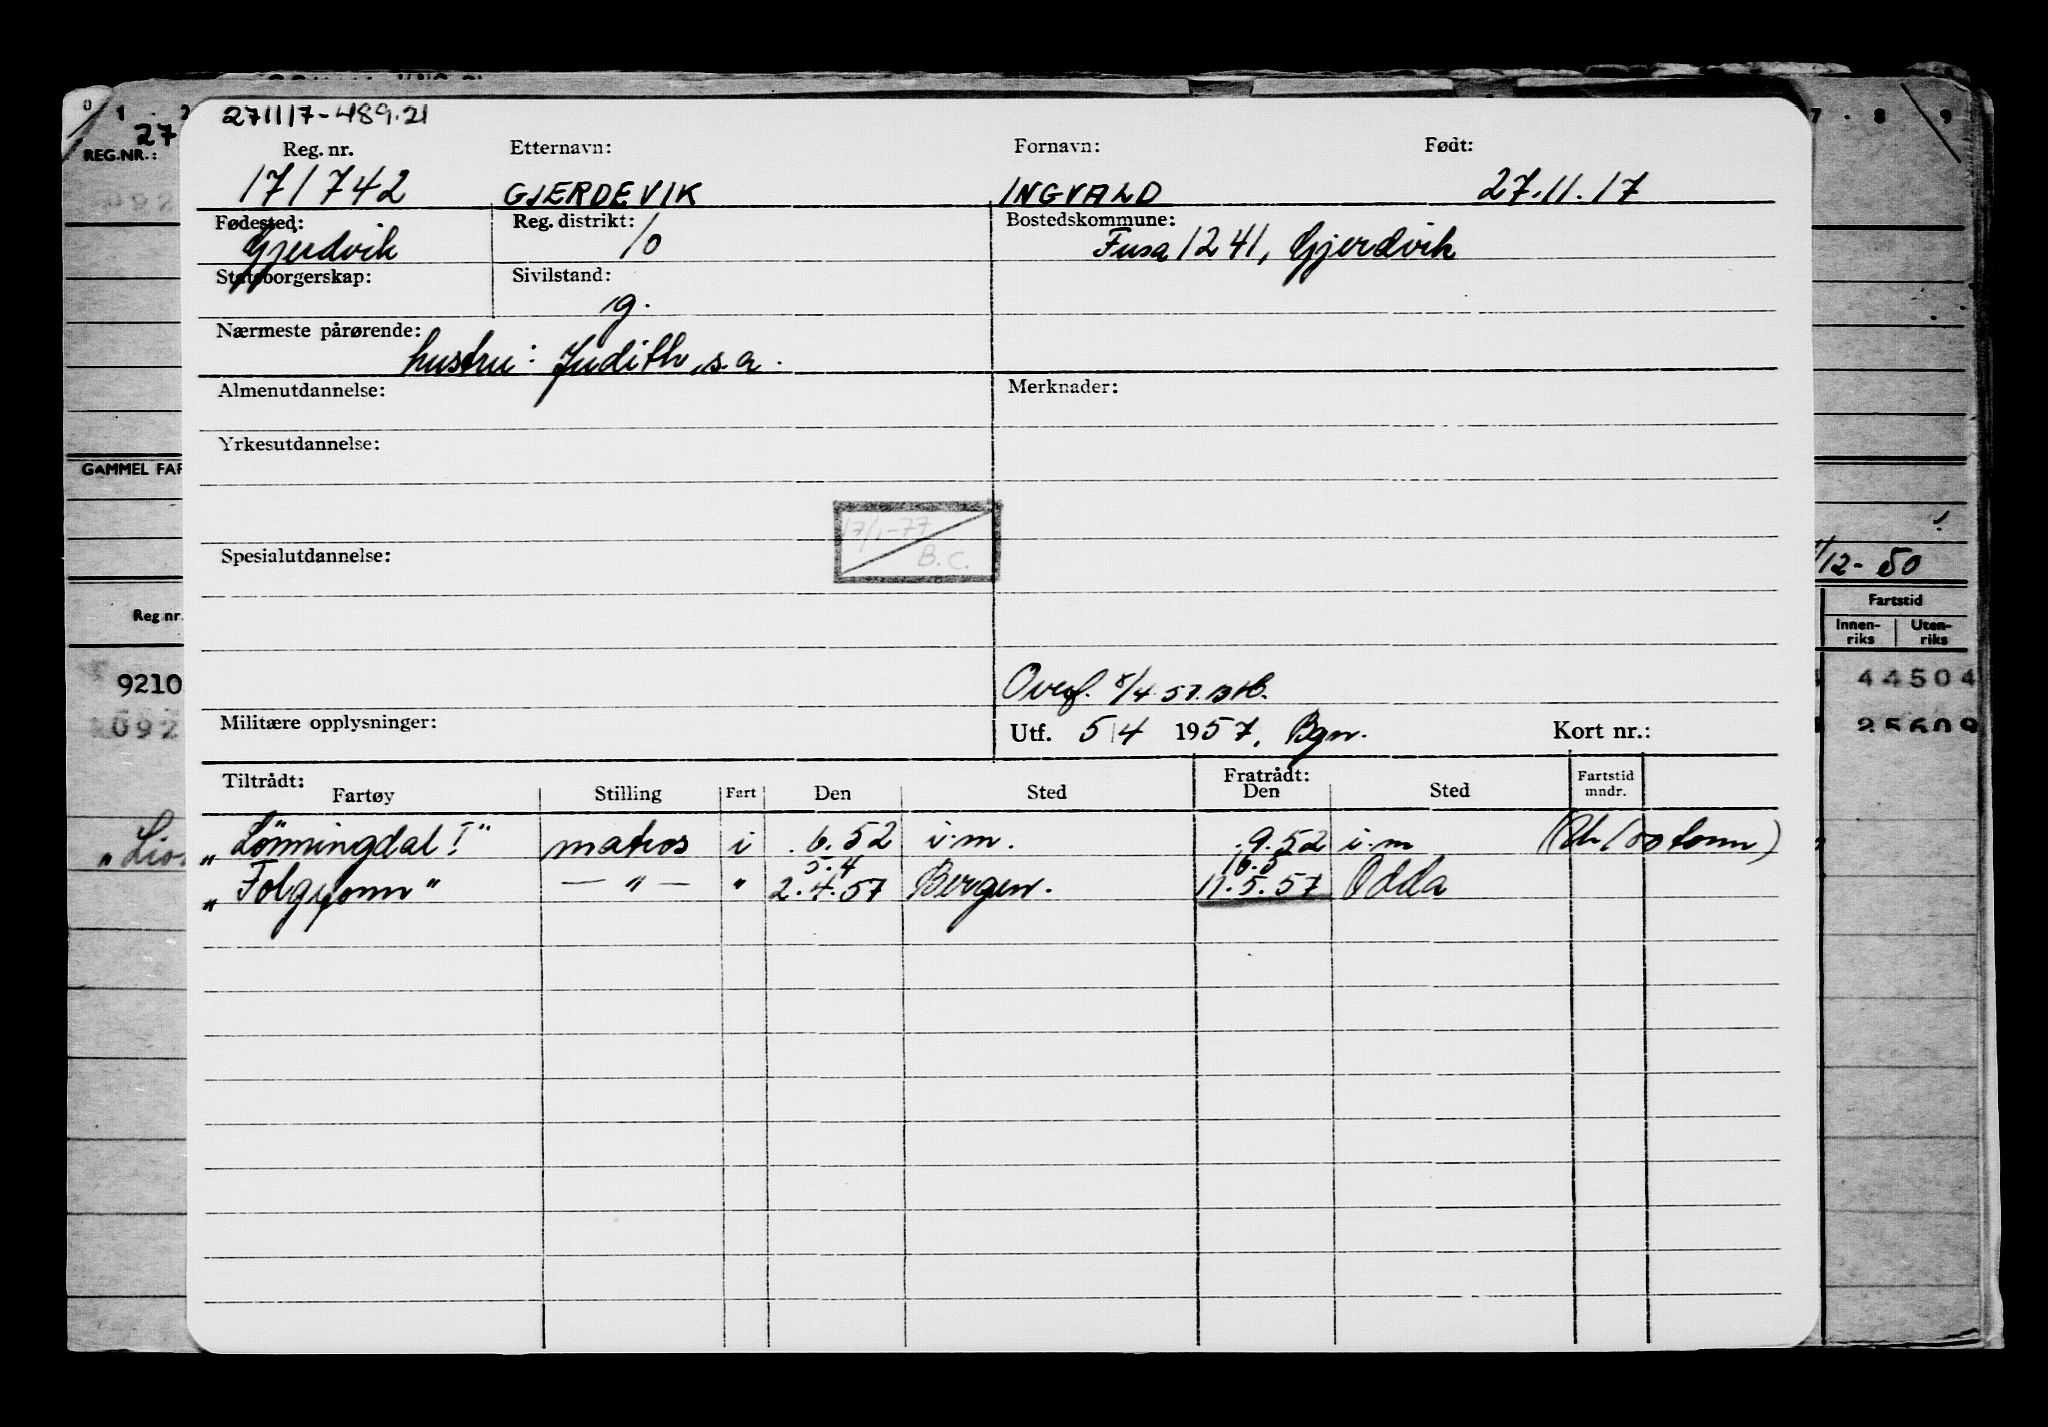 271117-489.21
Reg. nr. Etternavn: Fornavn: Født:
171742 GJERDEVIK INGVALD 27.11.17
Fødested: Reg. distrikt: Bostedskommune:
Gjerdvik 10 Fusa 1241, Gjerdvik
Statsborgerskap: Sivilstand:
g.
Nærmeste pårørende:
hustru: Judith, s.a.
Almenutdannelse: Merknader:
Yrkesutdannelse:
17/1-77
B.C.
Spesialutdannelse:
Overf. 8/4.57.
Militære opplysninger: Utf. 5/4 1957, Bgn. Kort nr.:
Tiltrådt: Fratrådt:
Fartøy Stilling Fart Den Sted Den Sted Fartstid mndr.
„Lønningdal I" matros i .6.52 i.m. .9.52 i.m tonn)
5.4 16.5
„Folgefonn" — " — " 2.4.57 Bergen. 11.5.57 Odda
0 1 27
REG.NR.:
GAMMEL FAR
Reg nr.
9210
092
7 · 8 9
/12-50
Fartstid
Innen-riks Uten-riks
44504
25609